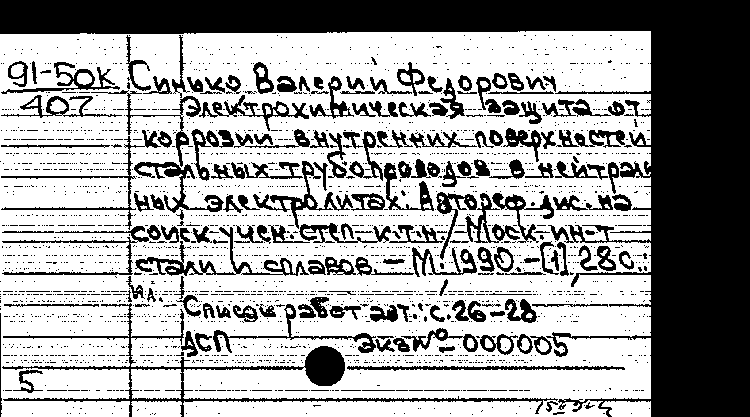 91-50к Синько Валерий Федорович
407 Электрохимическая защита от
коррозии внутренних поверхностей
стальных трубопроводов в нейтраль
ных электролитах: Автореф. дис. на
соиск. учен. степ. к.т.н. / Моск. ин-т
стали и сплавов. — М., 1990. — [1], 28 с.:
ил.
Список работ авт.: с. 26-28
ДСП Экз № 000005
5